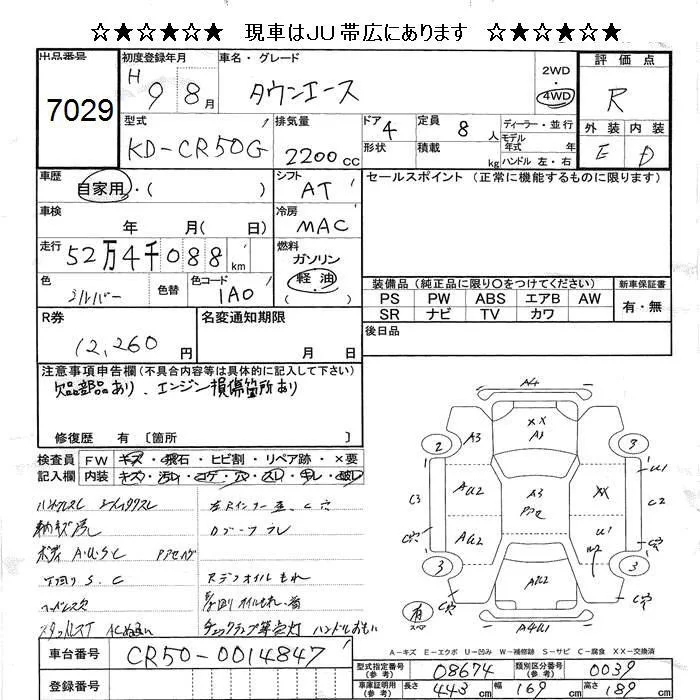 ☆★☆★☆★ 現車はJU帯広にあります ☆★☆★☆★
出品番号 初度登録年月 車名・グレード 評価点
7029 H 9 8月 タウンエース 2WD 4WD R
型式 排気量 ドア 4 定員 8人 ディーラー・並行 外装 内装
KD-CR50G 2200cc 形状 積載 kg モデル年式 年 ハンドル 左・右 E D
車歴 自家用・( ) シフト AT セールスポイント (正常に機能するものに限ります)
車検 年 月( 日) 冷房 MAC
走行 52万4千088km 燃料 ガソリン 軽油
色 シルバー 色替 色コード 1A0
装備品 (純正品に限り○をつけてください) 新車保証書
PS PW ABS エアB AW 有・無
SR ナビ TV カワ
R券 12,260円 名変通知期限 月 日 後日品
注意事項申告欄 (不具合内容等は具体的に記入して下さい)
欠品部品あり、エンジン損傷箇所あり
修復歴 有 〔箇所 〕
検査員 FW キズ・飛石・ヒビ割・リペア跡・×要
記入欄 内装 キズ・汚れ・コゲ・穴・スレ・キレ・破レ
ハンドルスレ
ボディ A・U・S・C
下回り S.C
Rデフオイルもれ
チェックランプ等点灯 ハンドルおもい
A4
2 A3 XX A3 3
C3 AU2 A3 XX U1 C2
AU2 U1 C穴
3 AU2 3
C穴 A4U1 C穴
有 スペア
A-キズ E-エクボ U-凹み W-補修跡 S-サビ C-腐食 XX-交換済
車台番号 CR50-0014847
型式指定番号 (参考) 08674 類別区分番号 (参考) 0039
登録番号
車庫証明用 (参考) 長さ 443cm 幅 169cm 高さ 189cm